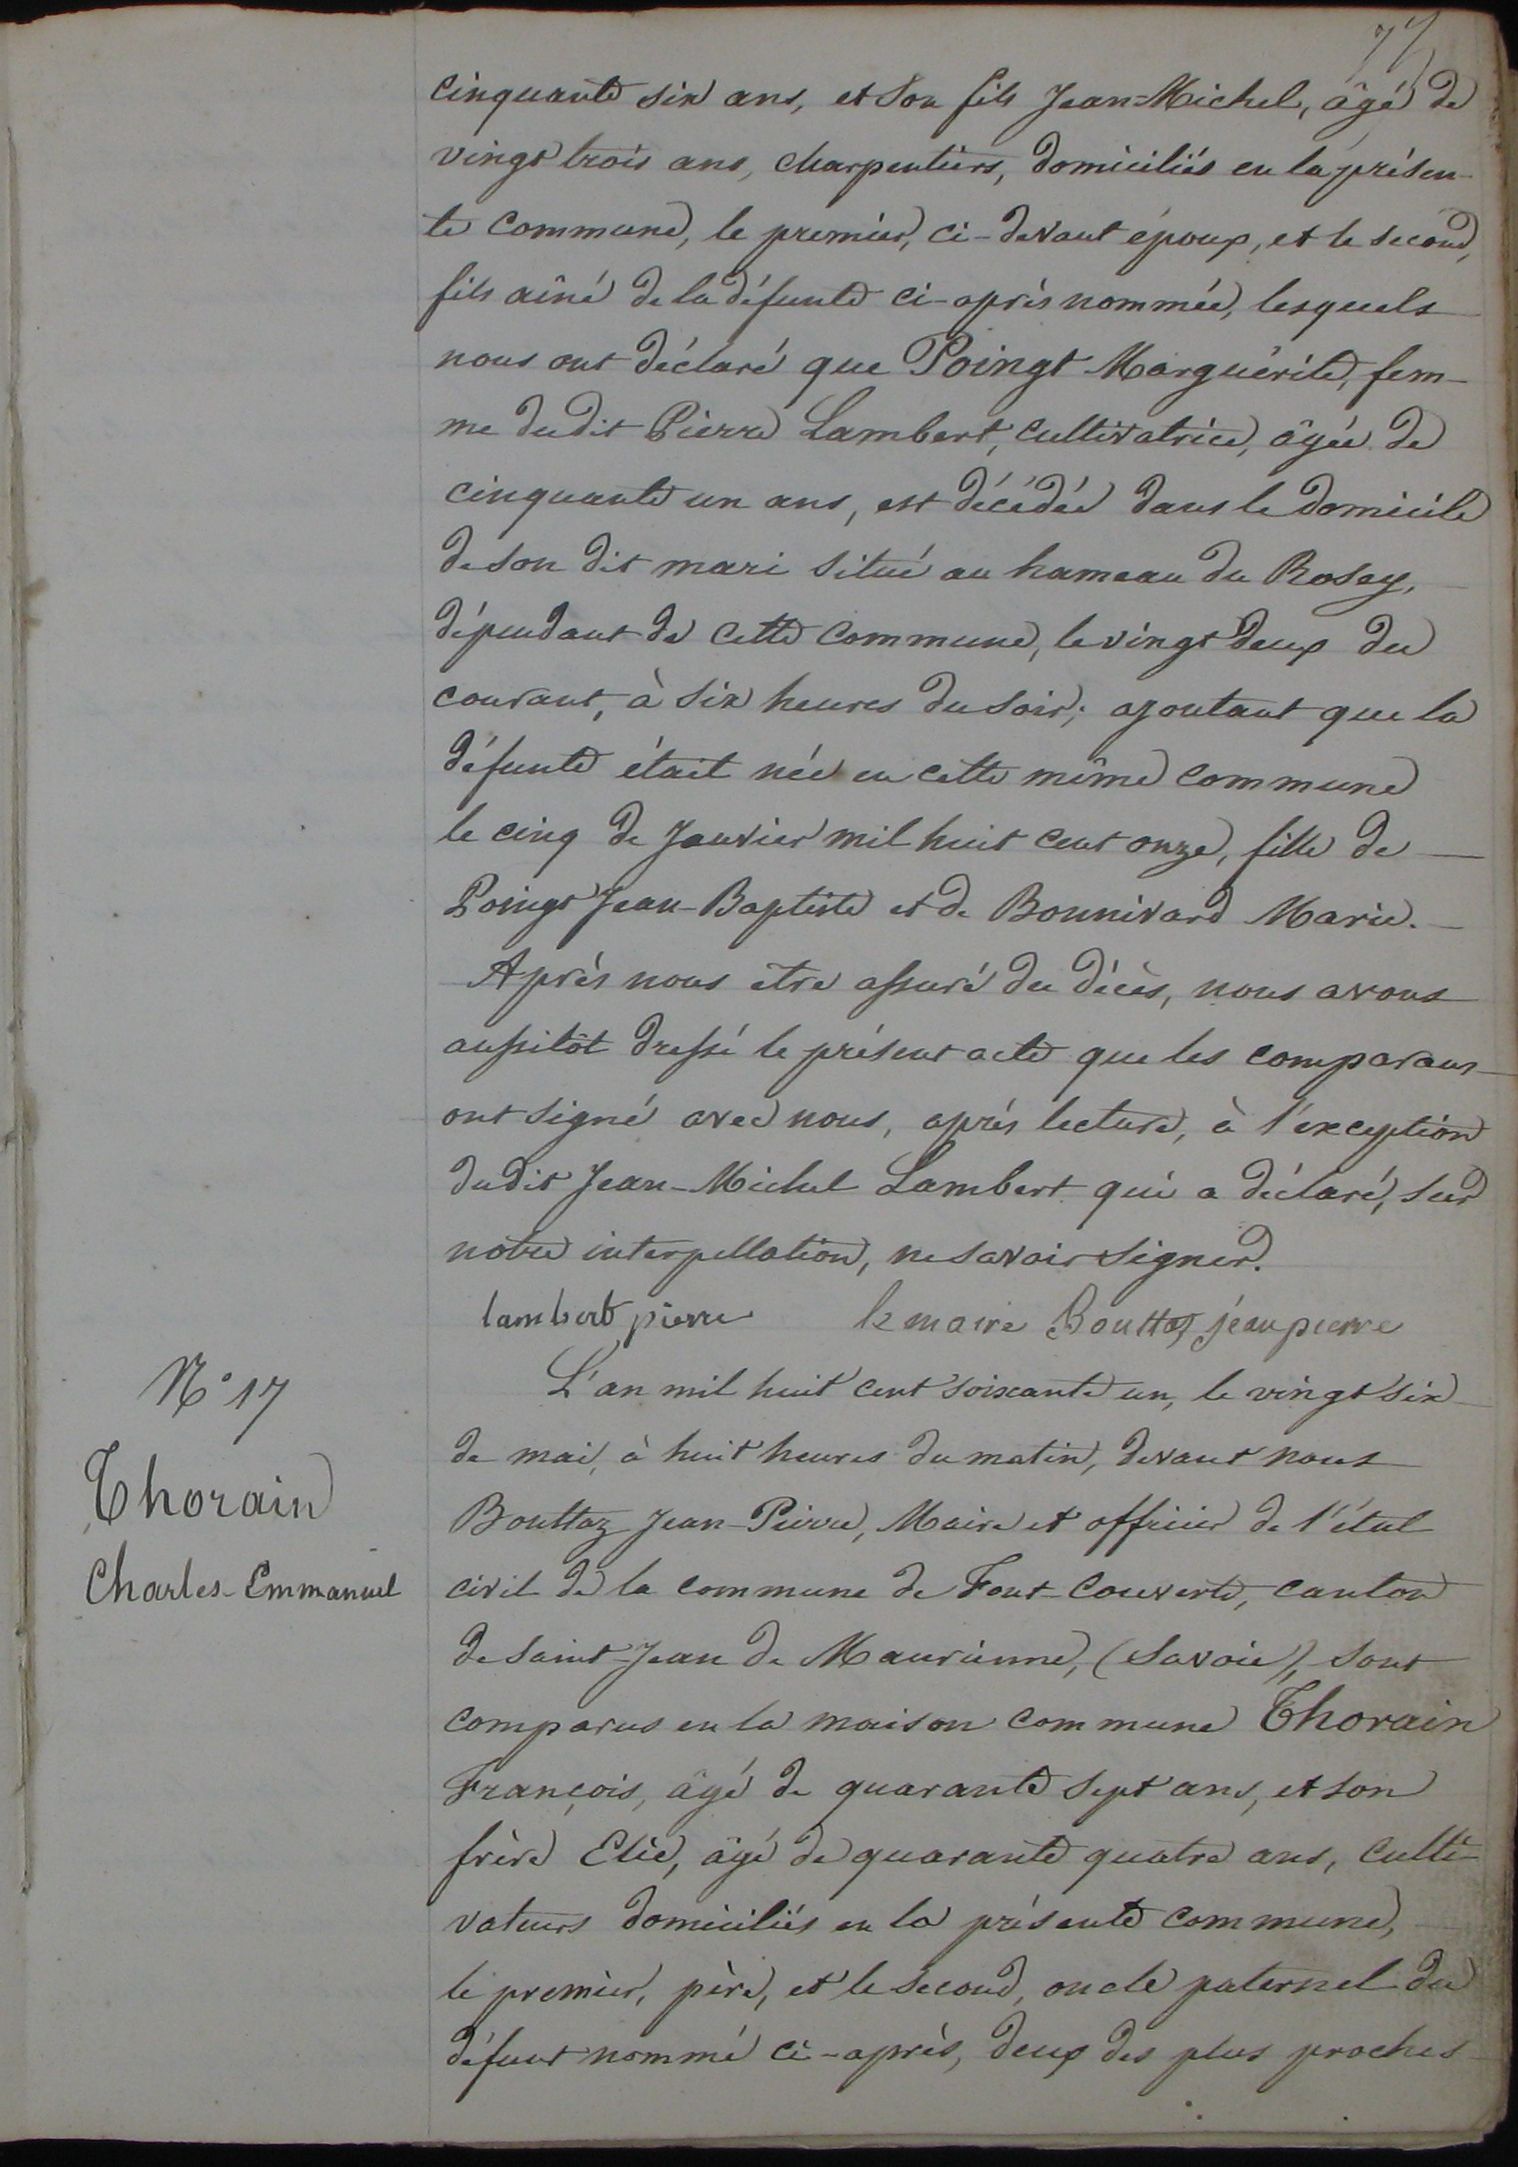 cinquante six ans, et son fils Jean-Michel, âgé de
vingt trois ans, charpentiers, domiciliés en la présen-
te commune, le premier, ci-devant époux, et le second,
fils aîné de la défunte ci-après nommée, lesquels
nous ont déclaré que Poingt Marguérite, fem-
me dudit Pierre Lambert, cultivatrice, âgée de
cinquante un ans, est décédée dans le domicile
de son dit mari situé au hameau du Rosey,
dépendant de cette commune, le vingt deux du
courant, à six heures du soir; ajoutant que la
défunte était née en cette même commune
le cinq de Janvier mil huit cent onze, fille de
Poingt Jean-Baptiste et de Bonnivard Marie.
Après nous être assuré du décès, nous avons
aussitôt dressé le présent acte que les comparans
ont signé avec nous, après lecture, à l'exception
dudit Jean-Michel Lambert qui a déclaré, sur
notre interpellation, ne savoir signer.
lambert pierre le maire Bouttaz jean pierre
N° 17
Thorain
Charles-Emmanuel
L'an mil huit cent soixante un, le vingt six
de mai, à huit heures du matin, devant nous
Bouttaz Jean-Pierre, Maire et officier de l'état
civil de la commune de Font-Couverte, canton
de Saint-Jean de Maurienne, (Savoie), sont
comparus en la maison commune Thorain
François, âgé de quarante sept ans, et son
frère Elie, âgé de quarante quatre ans, culti-
vateurs domiciliés en la présente commune,
le premier, père, et le second, oncle paternel du
défunt nommé ci-après, deux des plus proches